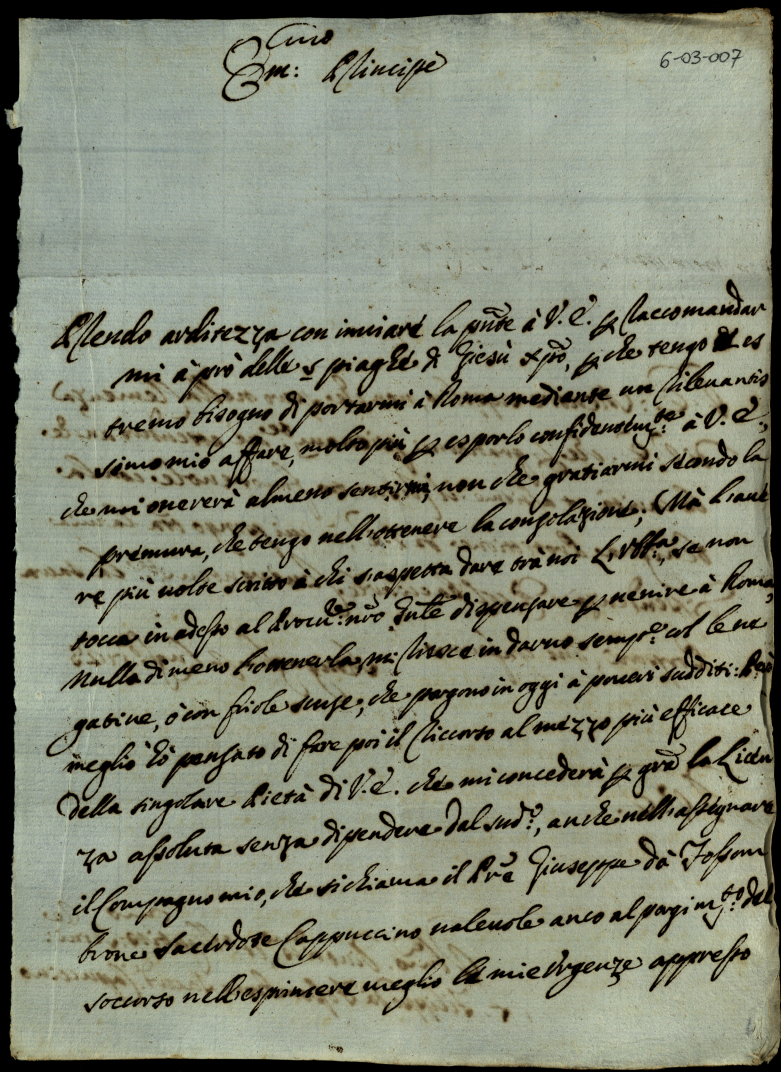 6-03-007
Em:mo Principe
Prendo arditezza con inviare la pnte à V. E. p raccomandar
mi à prò delle 5 piaghe di Giesù Xpro, p che tengo es
tremo bisogno di portarmi à Roma mediante un rilevantis
simo mio affare, molto più p esporlo confidentemte à V. E,
che mi onererà almeno sentirmi, non che gratiarmi secondo la
premura, che tengo nell'ottenere la consolazione; Mà l'ave
re più volte scritto à chi s'aspetta dare trà noi, se non
tocca inadesso al Procre nro Gnle dispensare p venire à Roma,
nulla di meno l'ottenerla, mi riesce indarno sempre col le ne
gative, ò con friole scuse, che porgono in oggi à poveri sudditi: Però
meglio hò pensato di fare poi il riccorso al mezzo più efficace
della singolare Pietà di V. E. che mi concederà p gra la Licen
za assoluta senza dipendere dal sudo, anche nell'assegnare
il Compagno mio, che si chiama il Pre Giuseppe dà Fossom
brone Sacerdote Cappuccino valevole anco al porgimto del
soccorso nell'esprimere meglio le mie Urgenze appresso